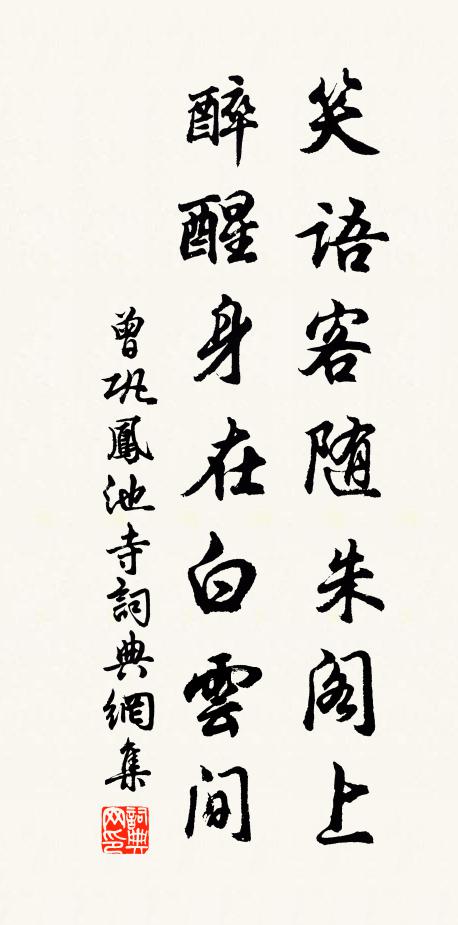 笑語客随朱阁上
醉醒身在白雲间
曾巩鳳池寺詞典網集
詞典
网印